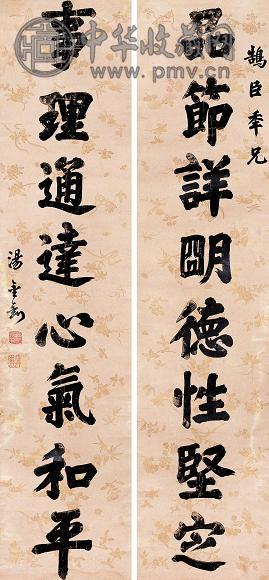 鵠臣年兄
品節詳明德性堅定
事理通達心氣和平
湯金釗
中华收藏网
www.pmv.cn